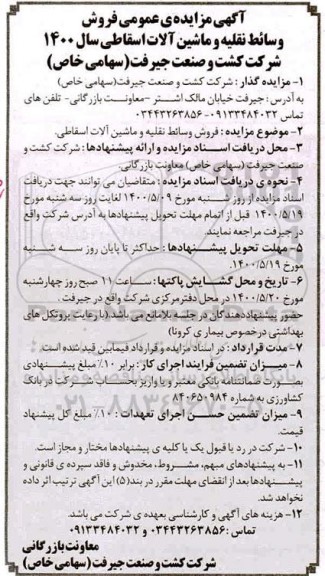 آگهی مزایده‌ی عمومی فروش
وسائط نقلیه و ماشین آلات اسقاطی سال ۱۴۰۰
شرکت کشت و صنعت جیرفت (سهامی خاص)
۱- مزایده گذار : شرکت کشت و صنعت جیرفت (سهامی خاص)
به آدرس : جیرفت خیابان مالک اشتر -معاونت بازرگانی- تلفن های
تماس ۰۹۱۳۳۴۸۴۰۳۲-۰۳۴۴۳۲۶۳۸۵۶
۲- موضوع مزایده : فروش وسائط نقلیه و ماشین آلات اسقاطی.
۳- محل دریافت اسناد مزایده و ارائه پیشنهادها : شرکت کشت و
صنعت جیرفت (سهامی خاص) معاونت بازرگانی.
۴- نحوه ی دریافت اسناد مزایده : متقاضیان می توانند جهت دریافت
اسناد مزایده از روز شنبه مورخ ۱۴۰۰/۵/۰۹ لغایت روز سه شنبه مورخ
۱۴۰۰/۵/۱۹ قبل از اتمام مهلت تحویل پیشنهادها به آدرس شرکت واقع
در جیرفت مراجعه نمایند.
۵- مهلت تحویل پیشنهادها : حداکثر تا پایان روز سه شنبه
مورخ ۱۴۰۰/۵/۱۹.
۶- تاریخ و محل گشایش پاکتها : ساعت ۱۱ صبح روز چهارشنبه
مورخ ۱۴۰۰/۵/۲۰ در محل دفتر مرکزی شرکت واقع در جیرفت .
حضور پیشنهاددهندگان در جلسه بلامانع می باشد. (با رعایت پروتکل های
بهداشتی درخصوص بیماری کرونا)
۷- مدت قرارداد : در اسناد مزایده و قرارداد فیمابین قید شده است.
۸- میزان تضمین فرایند اجرای کار : برابر ۱۰٪ مبلغ پیشنهادی
بصورت ضمانتنامه بانکی معتبر و یا واریز بحساب شرکت در بانک
کشاورزی به شماره ۸۴۰۶۵۰۹۸۴
۹- میزان تضمین حسن اجرای تعهدات : ۱۰٪ مبلغ کل پیشنهاد
قیمت.
۱۰- شرکت در رد یا قبول یک یا کلیه ی پیشنهادها مختار و مجاز است.
۱۱- به پیشنهادهای مبهم، مشروط، مخدوش و فاقد سپرده ی قانونی و
پیشنهادها بعد از انقضای مهلت مقرر در بند (۵) این آگهی ترتیب اثر داده
نخواهد شد.
۱۲- هزینه های آگهی و کارشناسی بعهده ی شرکت می باشد.
تماس : ۰۳۴۴۳۲۶۳۸۵۶ و ۰۹۱۳۳۴۸۴۰۳۲
معاونت بازرگانی
شرکت کشت و صنعت جیرفت (سهامی خاص)